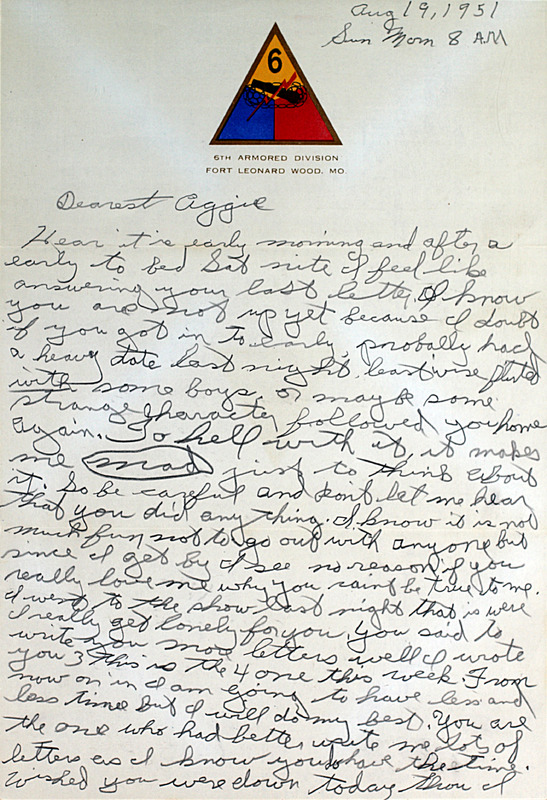 Aug 19, 1951
Sun Morn 8 AM
6
6TH ARMORED DIVISION
FORT LEONARD WOOD, MO.
Dearest Aggie
Hear it's early morning and after a
early to bed Sat nite I feel like
answering your last letter. I know
you are not up yet because I doubt
if you got in to early, probally had
a heavy date last night leastwise flirted
with some boys, or maybe some
strange character followed you home
again. To hell with it, it makes
me mad just to think about
it. So be careful and don't let me hear
that you did any thing. I know it is not
much fun not to go out with anyone but
since I get by I see no reason if you
really love me why you can't be true to me.
I went to the show last night that is were
I really get lonely for you. You said to
write you more letters well I wrote
you 3 this is the 4 one this week. From
now on in I am going to have less and
less time but I will do my best. You are
the one who had better write me lots of
letters as I know you have the time.
Wished you were down today thou I